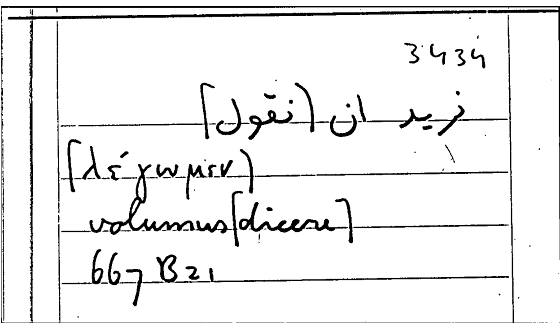 3434
نريد ان [نقول]
[λέγωμεν]
volumus [dicere]
667 B21